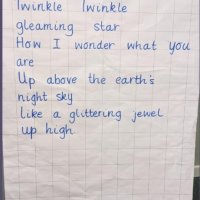 Twinkle Twinkle
gleaming star
How I wonder what you
are
Up above the earth's
night sky
Like a glittering jewel
up high.